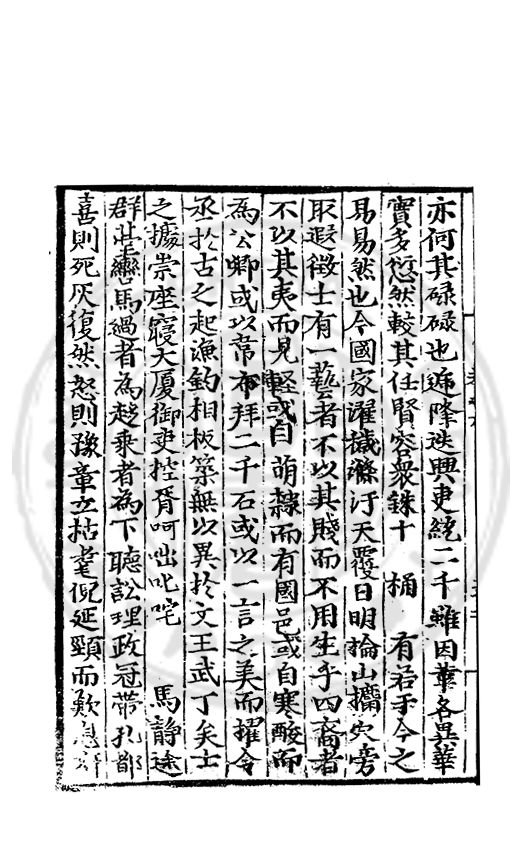 亦何其碌碌也遞降迭興更綂二千雖因華各異華
實多愆然較其任賢容衆銖十　桶　有若于今之
易易然也今國家濯穢滌汙天覆日明掄山擖穴旁
取遐徵士有一藝者不以其賤而不用生乎四裔者
不以其夷而見輕或自萌隸而有國邑或自寒酸而
為公卿或以韋布拜二千石或以一言之美而擢令
丞扵古之起漁釣相板築無以異扵文王武丁矣士
之據崇座寢大厦御吏控胥呵咄叱咤　馬静途
群轡馬過者為趍乘者為下聽訟理政冠帶孔都
喜則死灰復然怒則豫章立枯耄倪延頸而歎息